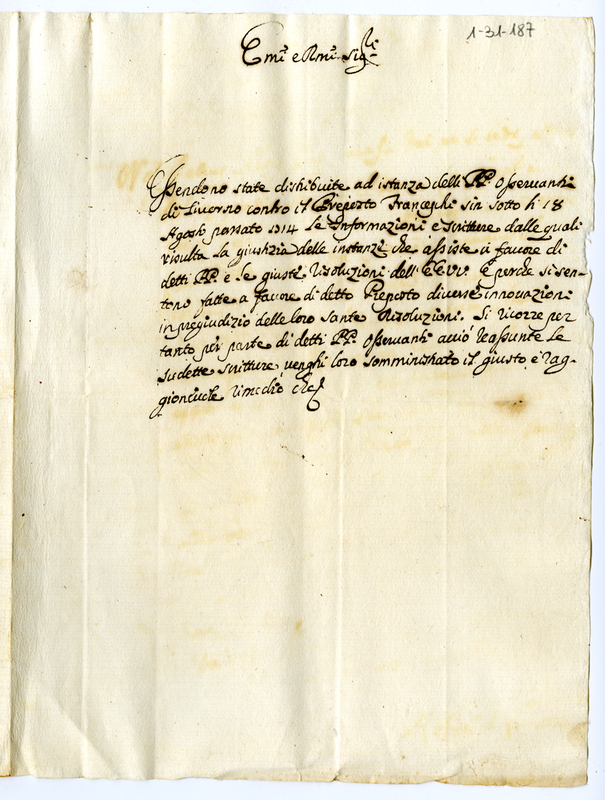 1-31-187
Emi e Rmi Sigri
Essendono state distribuite ad istanza delli PP. Osservanti
di Livorno contro il Preposto Franceschi sin sotto li 18
Agosto passato 1714 le Informazioni e scritture dalle quali
risulta la giustizia delle instanze che assiste à favore di
detti PP. e le giuste risoluzioni dell' EE.VV. E perche si sen-
tono fatte a favore di detto Preposto diverse innovazioni
in pregiudizio delle loro sante Risoluzioni. Si ricorre per
tanto per parte di detti PP. Osservanti acciò reassunte le
sudette scritture venghi loro somministrato il giusto e rag-
gionevole rimedio che